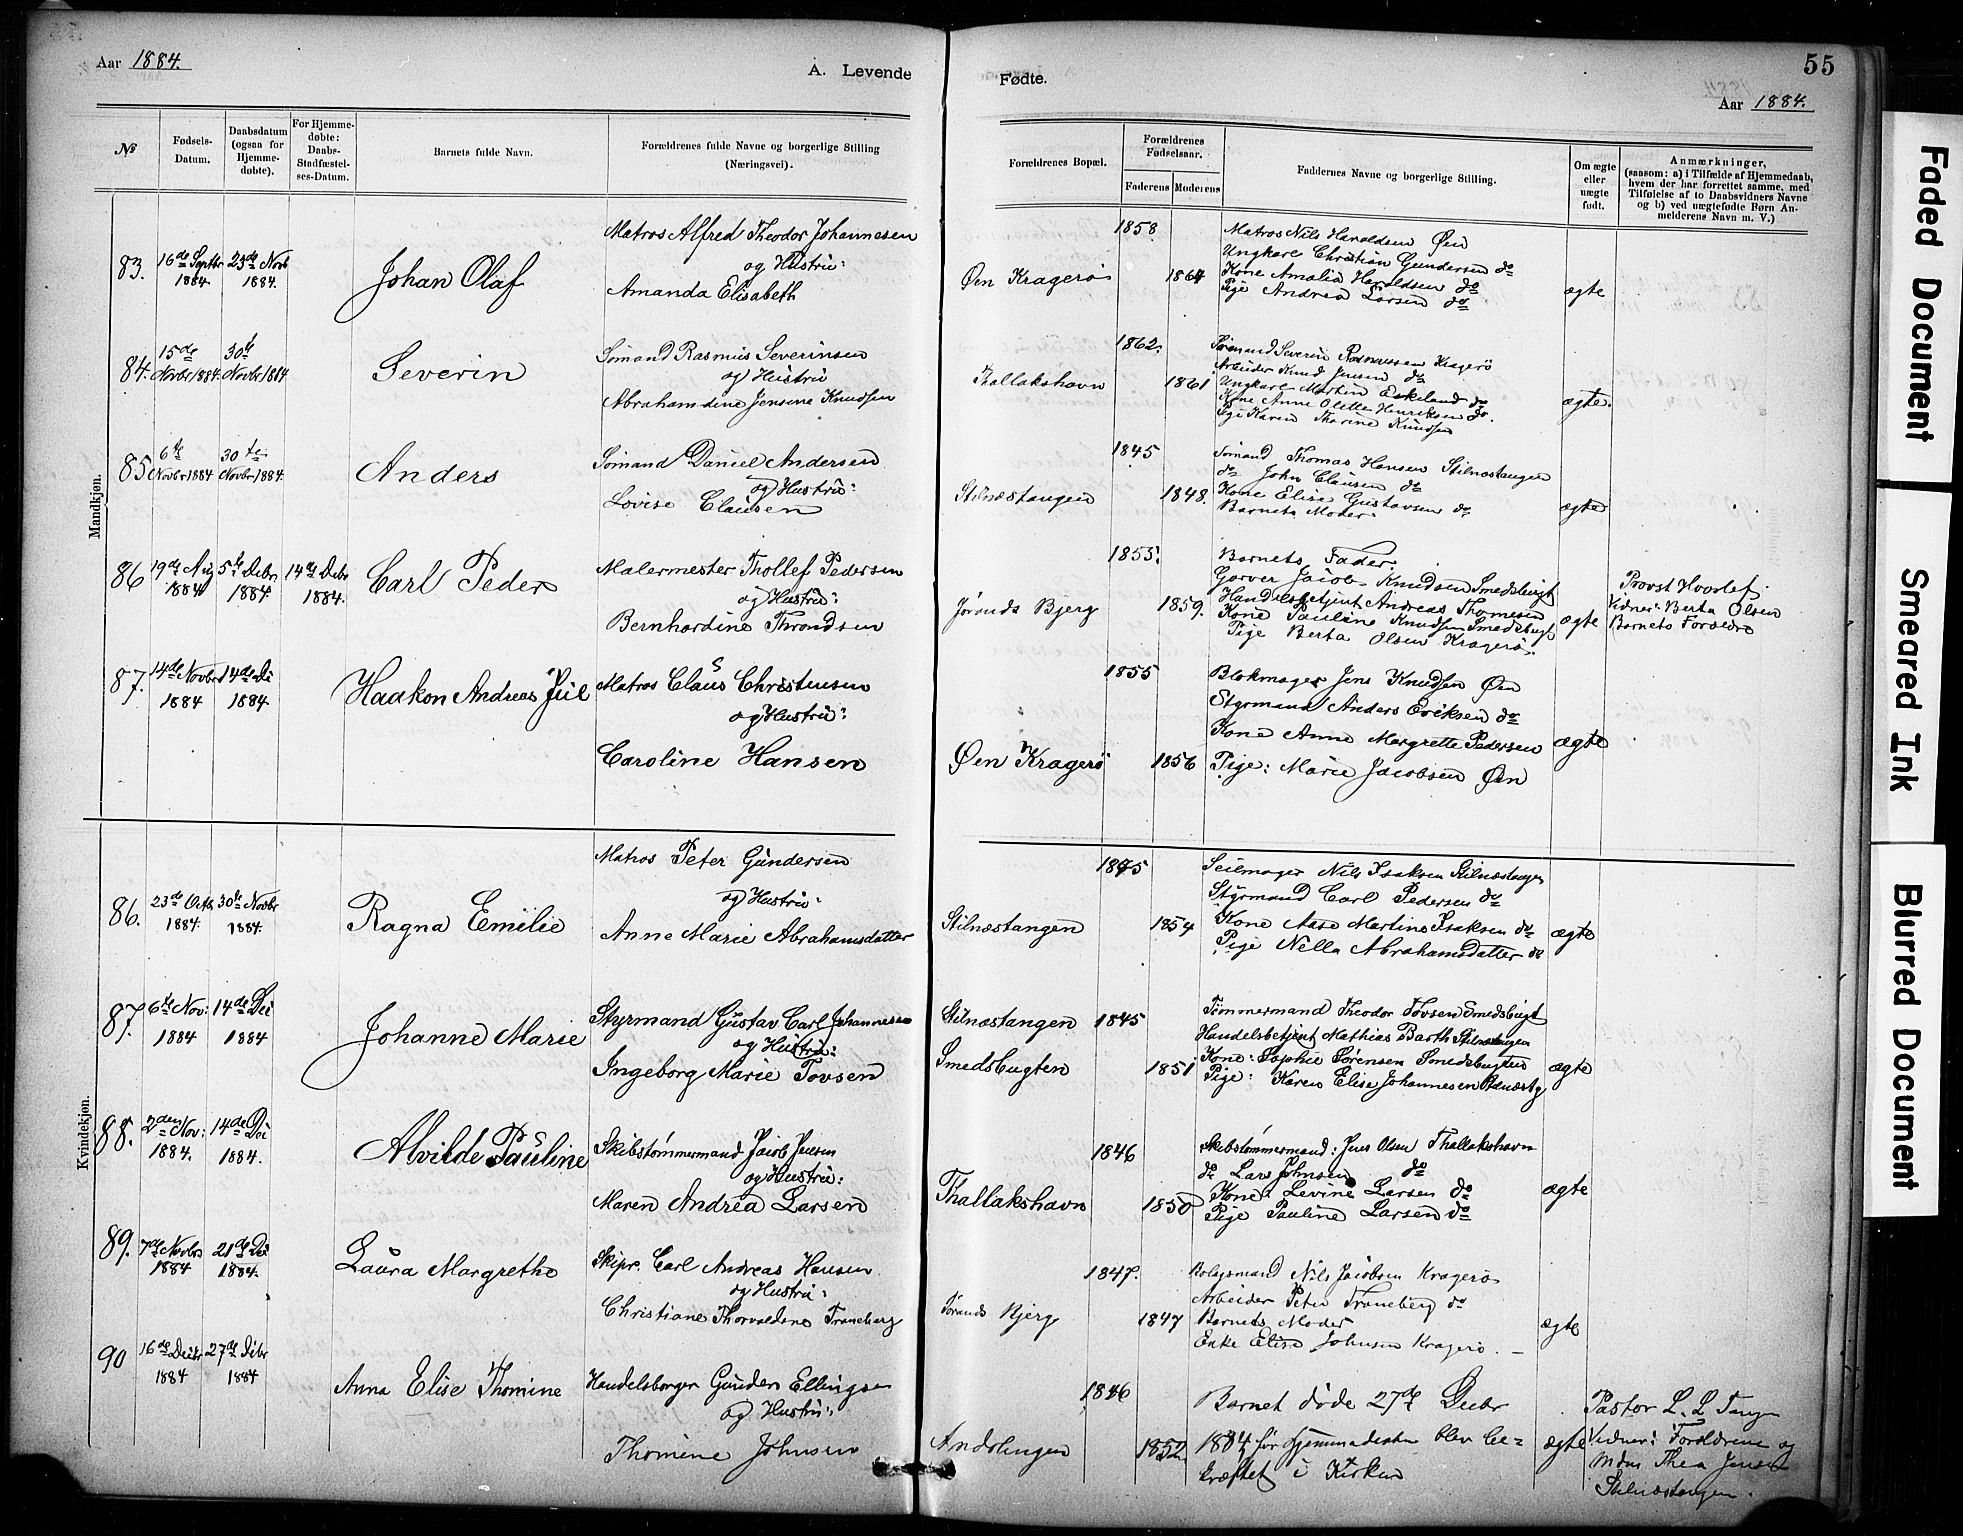 Aar 1884.
A. Levende
Fødte.
55
Aar 1884.
№
Fødsels-
Datum.
Daabsdatum
(ogsaa for
Hjemme-
døbte).
For Hjemme-
døbte:
Daabs-
Stadfæstel-
ses-Datum.
Barnets fulde Navn.
Forældrenes fulde Navne og borgerlige Stilling
(Næringsvei).
Forældrenes Bopæl.
Forældrenes
Fødselsaar.
Faderens
Moderens
Faddernes Navne og borgerlige Stilling.
Om ægte
eller
uægte
født.
Anmærkninger,
(saasom: a) i Tilfælde af Hjemmedaab,
hvem der har forrettet samme, med
Tilføielse af to Daabsvidners Navne
og b) ved uægtefødte Børn An-
melderens Navn m. V.)
Mandkjøn.
83.
16de Septbr
1884
23de Novb
1884.
Johan Olaf
Matros Alfred Theodor Johannesen
og Hustru:
Amanda Elisabeth
Øen Kragerø
1858
1864
Matros Nils Haraldsen Øen
Ungkarl Christian Gundersen do
Kone Amalia Haraldsen do
Pige Andrea Larsen do
ægte
84.
15de
Novbr 1884.
30te
Novbr 1884
Severin
Sømand Rasmus Severinsen
og Hustru
Abrahamdine Jensine Knudsen
Thallakshavn
1862.
1861
Sømand Severin Rasmussen Kragerø
Arbeider Knud Jensen do
Ungkarl Martin Eskeland do
Kone Anne Olette Henriksen do.
Pige Karen Thorine Knudsen
ægte.
85
6te
Novbr 1884
30te
Novbr 1884.
Anders
Sømand Daniel Andersen
og Hustru:
Lovise Clausen
Stilnæstangen
1845
1848.
Sømand Thomas Hansen Stilnæstangen
do John Clausen do
Kone Elise Gustavsen do
Barnets Moder.
ægte
86
19de Aug
1884
5te Debr.
1884.
14de Debr
1884.
Carl Peder
Malermester Thollef Pedersen
og Hustru:
Bernhardine Throndsen
Jørunds Bjerg
1855.
1859.
Barnets Fader.
Garver Jacob Knudsen Smedsbugt
Handelsbetjent Andreas Thomesen
Kone Pauline Knudsen Smedsbugt
Pige Berta Olsen Kragerø.
ægte
Provst Hvoslef.
Vidner: Berta Olsen
Barnets Forældre
87.
14de Novbr
1884
14de De
1884.
Haakon Andreas Juel
Matros Claus Christensen
og Hustru:
Caroline Hansen
Øen Kragerø
1855
1856
Blokmager Jens Knudsen Øen
Styrmand Anders Eriksen do
Kone Anne Margrette Pedersen
Pige: Marie Jacobsen Øen
ægte
Kvindekjøn.
86.
23de Octb
1884.
30te Novbr
1884.
Ragna Emilie
Matros Peter Gundersen
og Hustru:
Anne Marie Abrahamsdatter
Stilnæstangen
1845
1854
Seilmager Nils Isaksen Stilnæstangen
Styrmand Carl Pedersen do
Kone Aase Martine Isaksen do
Pige Nella Abrahamsdatter do
ægte
87.
6te Nov:
1884
14de De
1884
Johanne Marie
Styrmand Gustav Carl Johannesen
og Hustru:
Ingeborg Marie Tovsen
Stilnæstangen
Smedsbugten
1845
1851
Tømmermand Theodor Tovsen Smedsbugt
Handelsbetjent Mathias Barth Stilnæstangen
Kone: Sophie Sørensen Smedsbugten
Pige: Karen Elise Johannesen Stilnæstg
ægte
88.
2den Nov:
1884.
14de De
1884.
Alvilde Pauline
Skibstømmermand Jacob Jensen
og Hustru:
Maren Andrea Larsen
Thallakshavn
1846
1850
Skibstømmermand: Jens Olsen Thallakshavn
do Lars Johnsen do
Kone: Levine Larsen do
Pige Pauline Larsen do
ægte
89.
7de Novbr
1884
21de De
1884.
Laura Margrethe
Skipr. Carl Andreas Hansen
og Hustru:
Christiane Thorvaldine Traneberg
Jørunds Bjerg
1847.
1847
Nils Jacobsen Kragerø
Arbeider Peter Traneberg do
Barnets Moder
Enke Elise Johnsen Kragerø. —
ægte
90
16de Decbr
1884
27de Debr
1884
Anna Elise Thomine
Handelsborger Gunder Ellingsen
og Hustru:
Thomine Johnsen
1846
1852.
Barnet døde 27de Decbr
1884 før Hjemmedaaben blev be-
kræftet i Kirken
ægte
Pastor L. L. Tangen
Vidner: Forældrene og
Madm Thea Jensen
Stilnæstangen.
Faded Document
Smeared Ink
Blurred Document